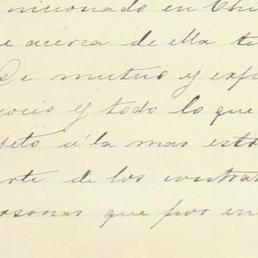 nicionado en Chi
e acerca de ella te
De mutuo y exp
ocio y todo lo que
eto á la mas estr
rte de los contra
rsonas que por en